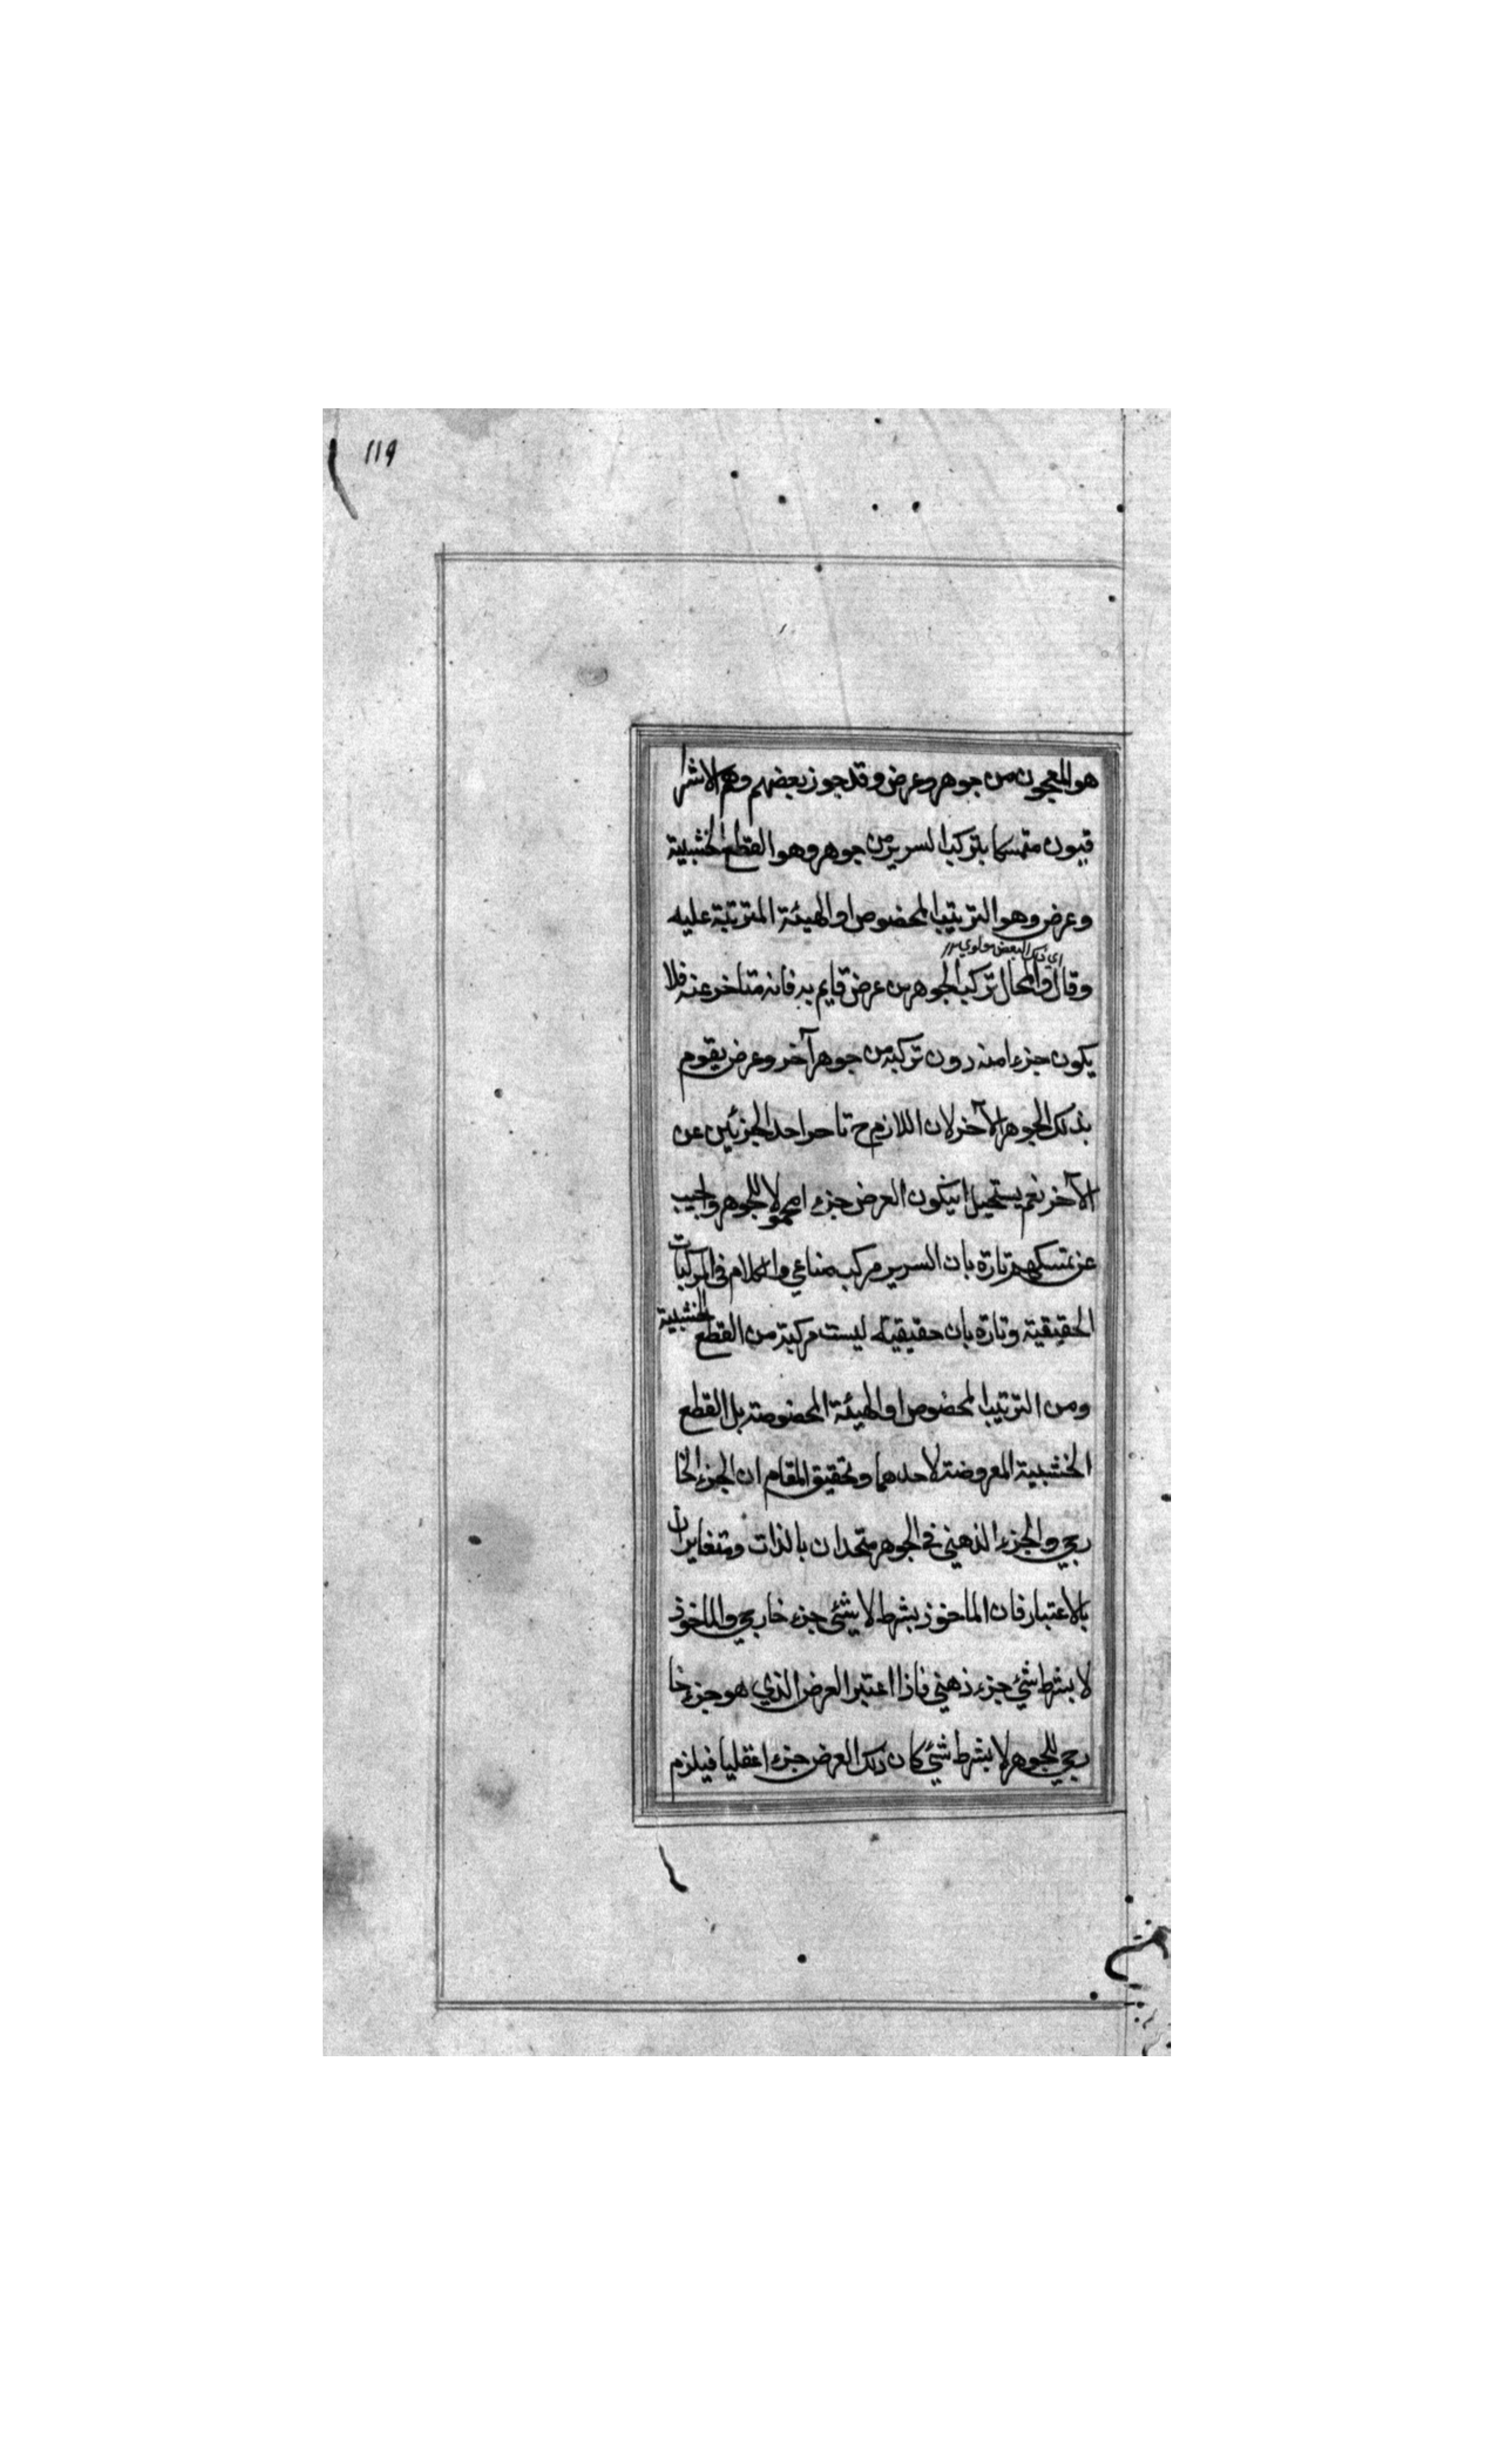 119
هو المعجون من جوهر وعرض وقد جوز بعضهم وهم الاشرا
قيون متمسكا بتركب السرير من جوهر وهو القطع الخشبية
وعرض وهو الترتيب المخصوص او الهيئة المترتبة عليه
اي ذلك البعض
وقال والمحال تركب الجوهر من عرض قايم به فانه متاخر عنه فلا
يكون جزءا منه دون تركبه من جوهر آخر وعرض يقوم
بذلك الجوهر الآخر لان اللازم ح تاخر احد الجزئين عن
الآخر نعم يستحيل ان يكون العرض جزءا محمولا للجوهر واجيب
عن تمسكهم تارة بان السرير مركب صناعي والكلام في المركبات
الحقيقية وتارة بان حقيقته ليست مركبة من القطع الخشبية
ومن الترتيب المخصوص او الهيئة المخصوصة بل القطع
الخشبية المعروضة لاحدهما وتحقيق المقام ان الجزء الخا
رجي والجزء الذهني في الجوهر متحدان بالذات ومتغايران
بالاعتبار فان الماخوذ بشرط لا شئ جزء خارجي والماخوذ
لا بشرط شئ جزء ذهني فاذا اعتبر العرض الذي هو جزء خا
رجي للجوهر لا بشرط شئ كان ذلك العرض جزءا عقليا فيلزم